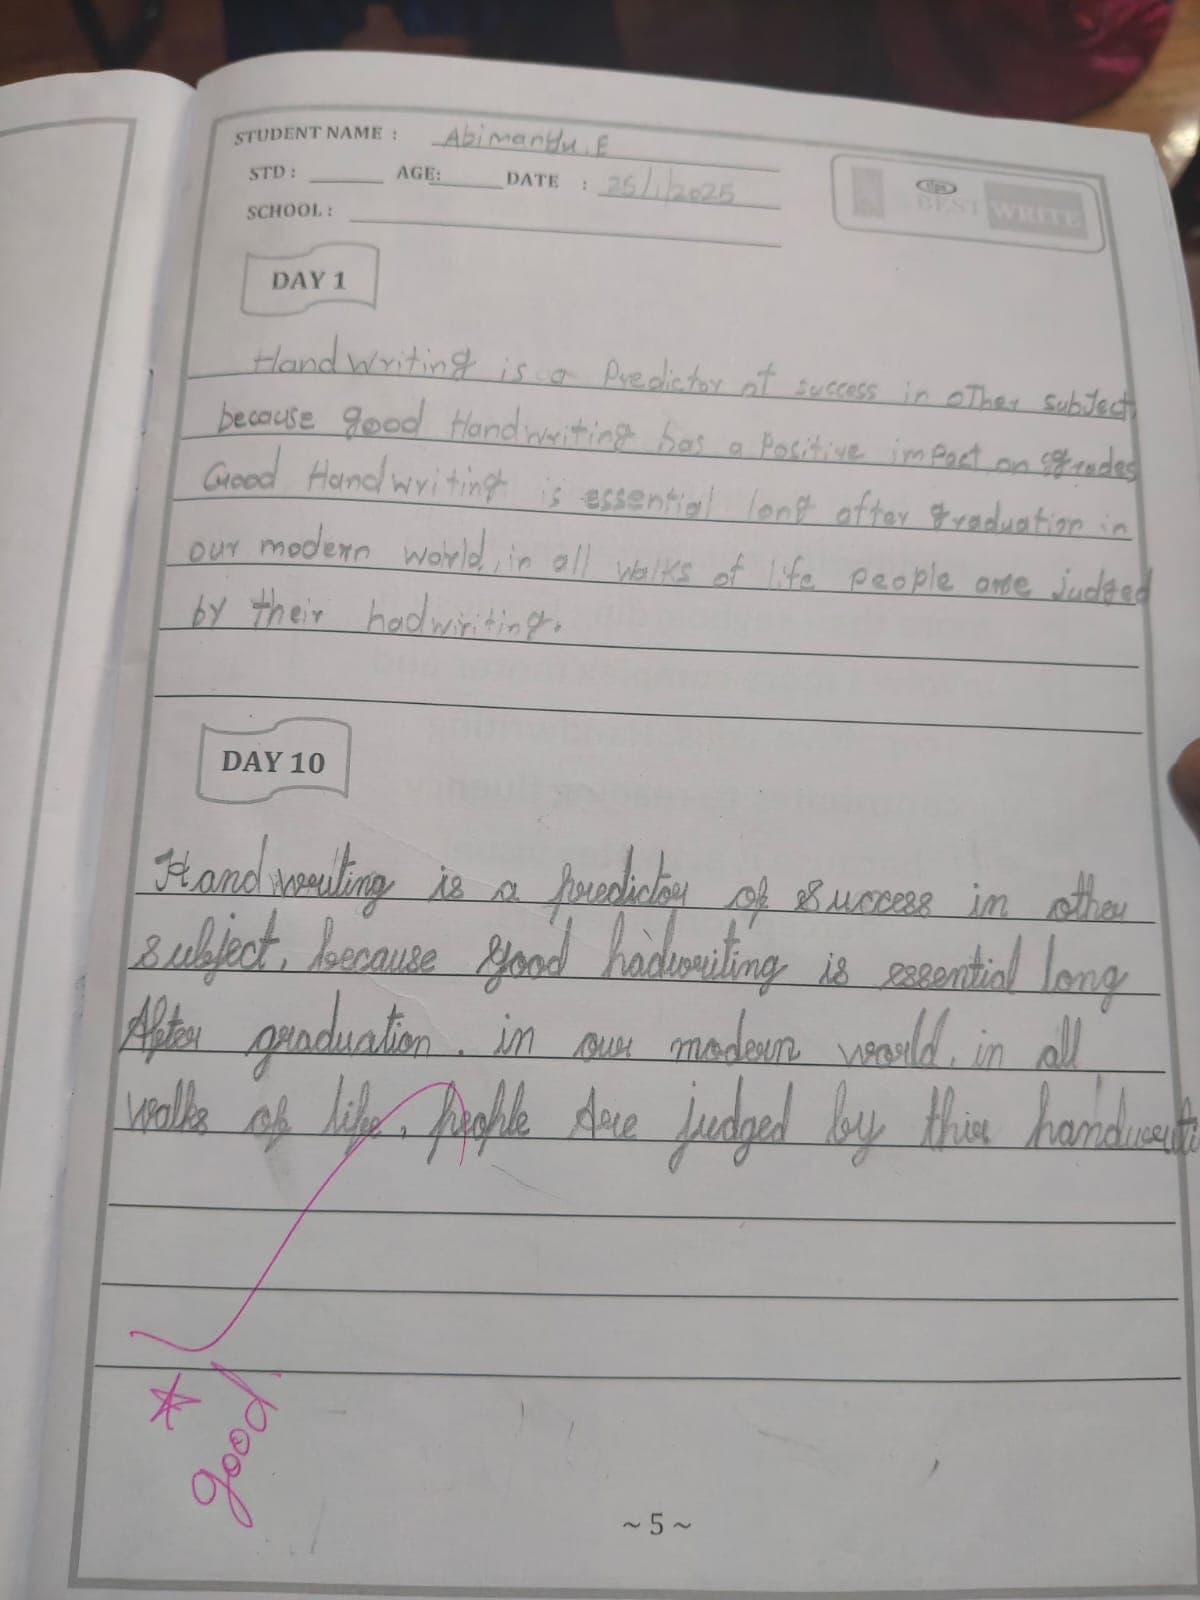 STUDENT NAME : Abimanyu.E
STD : AGE: DATE : 25/1/2025
SCHOOL :
tips
BEST WRITE
DAY 1
Handwriting is a Predictor of success in oTher subJect,
because good Handwriting has a Positive impact on grades
Good Handwriting is essential long after graduation in
our modern world, in all walks of life people are judged
by their hadwiriting.
DAY 10
Handwriting is a predictor of Success in other
subject, because good hadwriting is essential long
After graduation. in our modern world. in all
walks of life, people Are judged by thier handwriti
good.
~ 5 ~